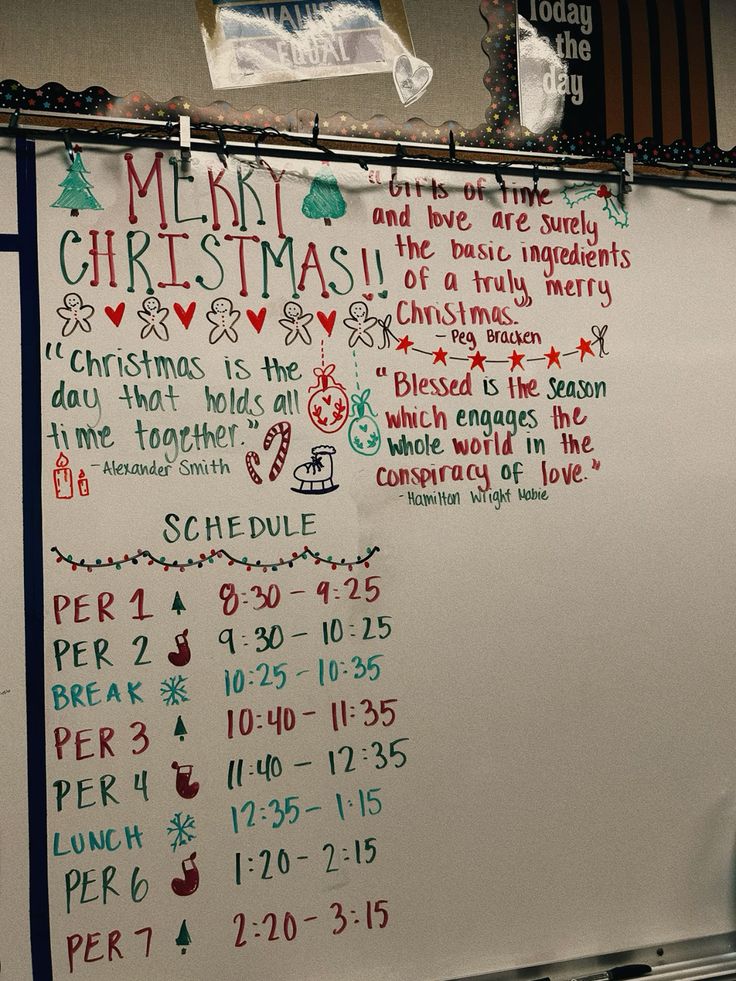 EQUAL
Today
is the
day
MERRY
CHRISTMAS!!
"Gifts of Time
and love are surely
the basic ingredients
of a truly merry
Christmas."
- Peg Bracken
"Christmas is the
day that holds all
time together."
- Alexander Smith
"Blessed is the season
which engages the
whole world in the
conspiracy of love."
- Hamilton Wright Mabie
SCHEDULE
PER 1 8:30 - 9:25
PER 2 9:30 - 10:25
BREAK 10:25 - 10:35
PER 3 10:40 - 11:35
PER 4 11:40 - 12:35
LUNCH 12:35 - 1:15
PER 6 1:20 - 2:15
PER 7 2:20 - 3:15